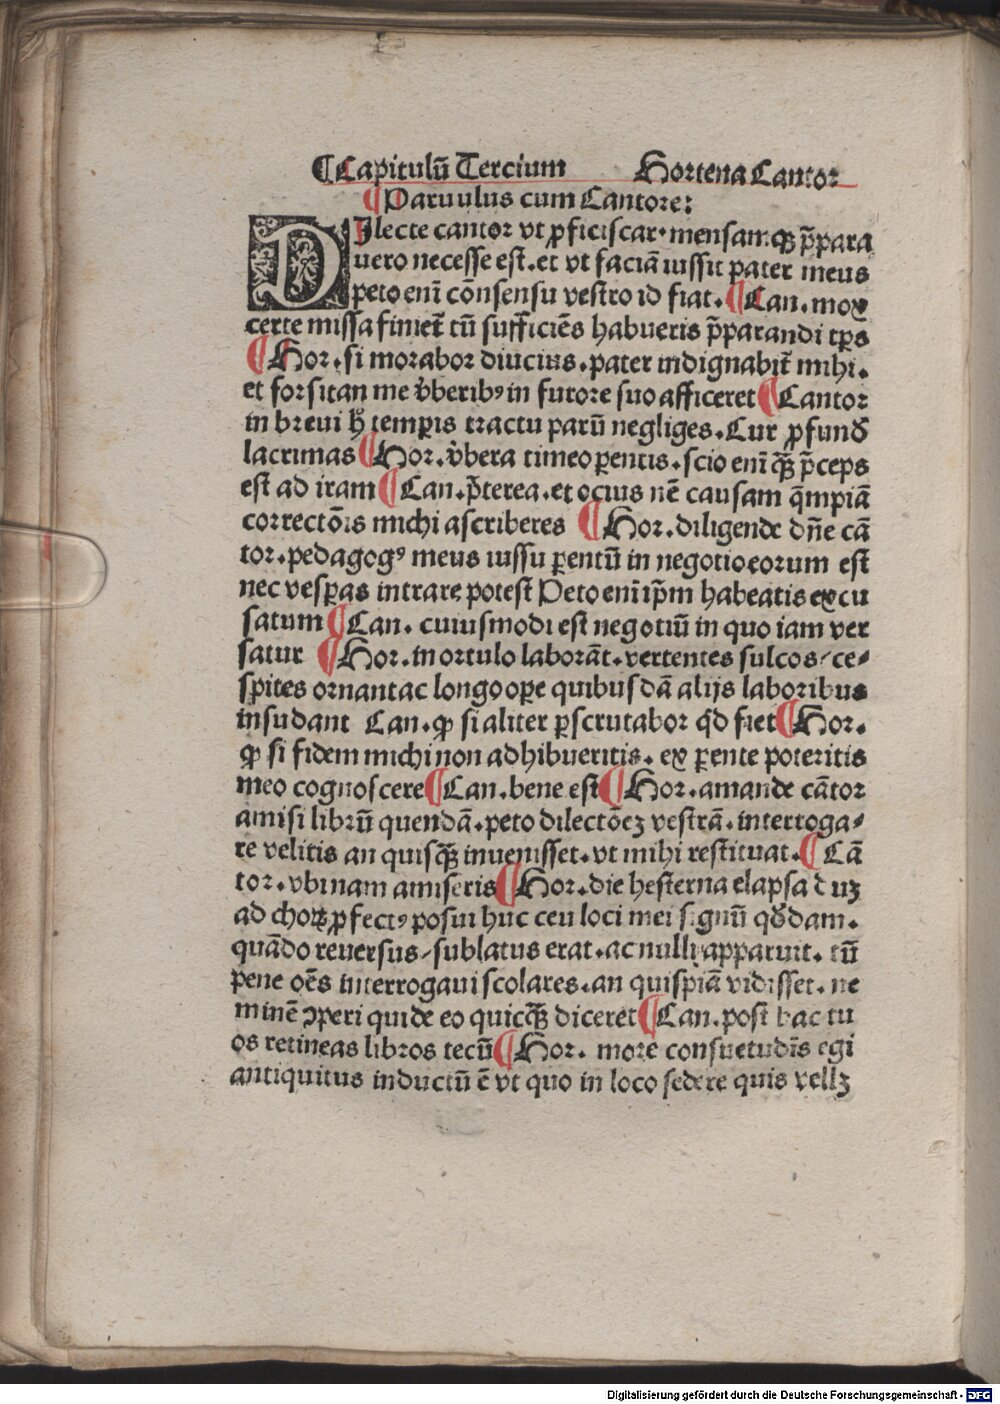 ¶Capitulū Tercium Hortena Cantor
¶Paruulus cum Cantore:
DIlecte cantor vt ꝓficiscar. mensamqꝫ p̄para
uero necesse est. et vt faciā iussit pater meus
peto eni cōnsensu vestro id fiat. ¶Can. mox
certe missa finiet̄ tū sufficiēs habueris p̄parandi tp̄s
¶Hor. si morabor diucius. pater indignabit̄ mihi.
et forsitan me v̄beribꝰ in furore suo afficeret ¶Cantor
in breui hꝰ temꝑis tractu parū negliges. Cur ꝓfund
lacrimas ¶Hor. v̄bera timeo ꝑentis. scio eni qꝫ p̄ceps
est ad iram ¶Can. p̄terea. et ocius nē causam q̄mpiā
correctōis michi ascriberes ¶Hor. diligende dn̄e cā
tor. pedagogꝰ meus iussu ꝑentū in negotio eorum est
nec vesꝑas intrare potest Peto eni ip̄m habeatis excu
satum ¶Can. cuiusmodi est negotiū in quo iam ver
satur ¶Hor. in ortulo laborāt. vertentes sulcos/ ce⸗
spites ornant ac longo oꝑe quibusdā alijs laboribus
insudant Can. ꝙ si aliter ꝑscrutabor qd fiet ¶Hor.
ꝙ si fidem michi non adhibueritis. ex ꝑente poteritis
meo cognoscere ¶Can. bene est ¶Hor. amande cātor
amisi librū quendā. peto dilectōeꝫ vestrā. interroga⸗
re velitis an quisqꝫ inuenisset. vt mihi restituat. ¶Cā
tor. vbinam amiseris ¶Hor. die hesterna elapsa duꝫ
ad choꝝ ꝓfectꝰ posui huc ceu loci mei signū qddam.
quādo reuersus/ sublatus erat. ac nulli apparuit. tū
pene oēs interrogaui scolares. an quispiā vidisset. ne
minē ꝯperi qui de eo quicqꝫ diceret ¶Can. post hac tu
os retineas libros tecū ¶Hor. more consuetudīs egi
antiquitus inductū ē vt quo in loco sedere quis vellꝫ
Digitalisierung gefördert durch die Deutsche Forschungsgemeinschaft - DFG